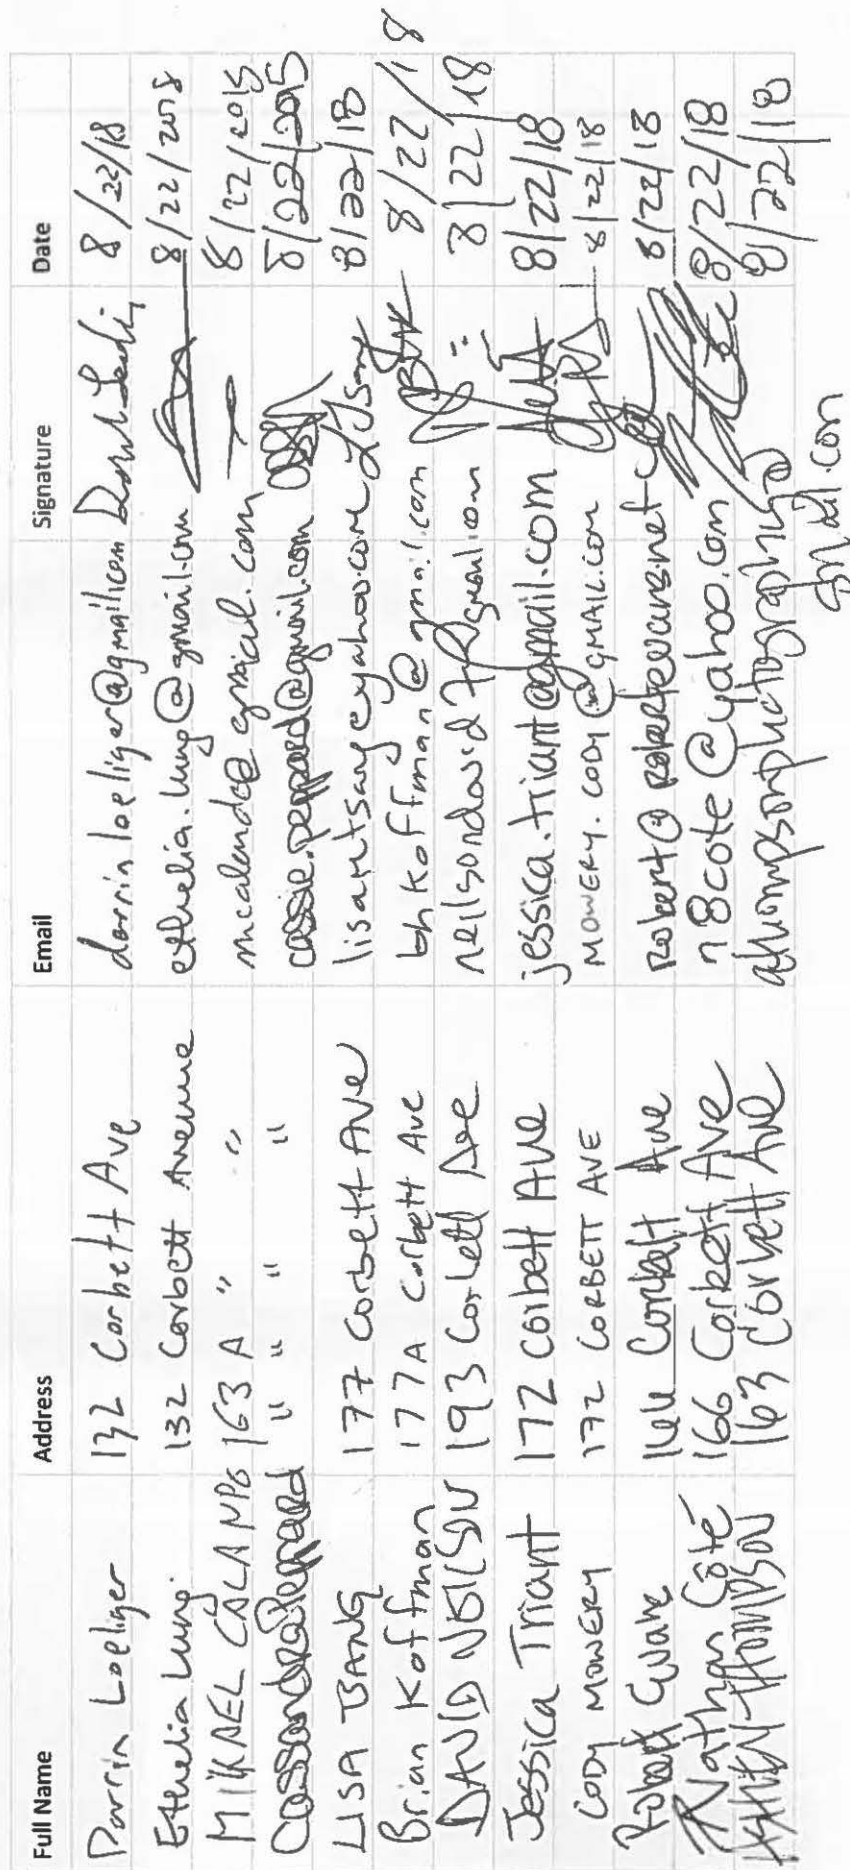 Full Name Address Email Signature Date
Darrin Loeliger 132 Corbett Ave darrinloeliger@gmail.com 8/22/18
Ethelia Lung 132 Corbett Avenue ethelia.lung@gmail.com 8/22/2018
MIKAEL 163 A " " mcalando@gmail.com 8/22/2018
Cassandra Peppard " " " " cassie.peppard@gmail.com 8/22/2018
LISA TSANG 177 Corbett AVe lisamtsang@yahoo.com 8/22/18
Brian Koffman 177A Corbett Ave bhkoffman@gmail.com 8/22/18
DAVID NEILSON 193 Corbett Ave 8/22/18
Jessica Triant 172 Corbett Ave jessica.triant@gmail.com 8/22/18
CODY MOWERY 172 CORBETT AVE MOWERY.CODY@GMAIL.COM 8/22/18
Robert Evans 166 Corbett Ave Robert@robertevans.net 8/22/18
Nathan Côté 166 Corbett Ave n8cote@yahoo.com 8/22/18
THOMPSON 163 Corbett Ave athompsonphotography@ 8/22/18
gmail.com